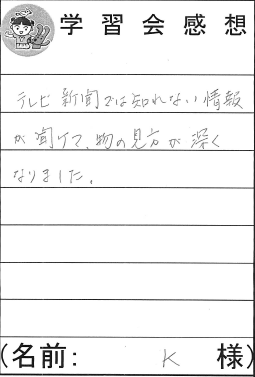 学習会感想
テレビ新聞では知れない情報
が聞けて、物の見方が深く
なりました。
(名前: K 様)